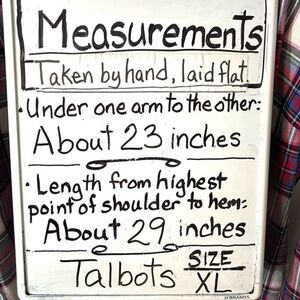 Measurements
Taken by hand, laid flat.
• Under one arm to the other:
About 23 inches
• Length from highest
point of shoulder to hem:
About 29 inches
Talbots SIZE
XL